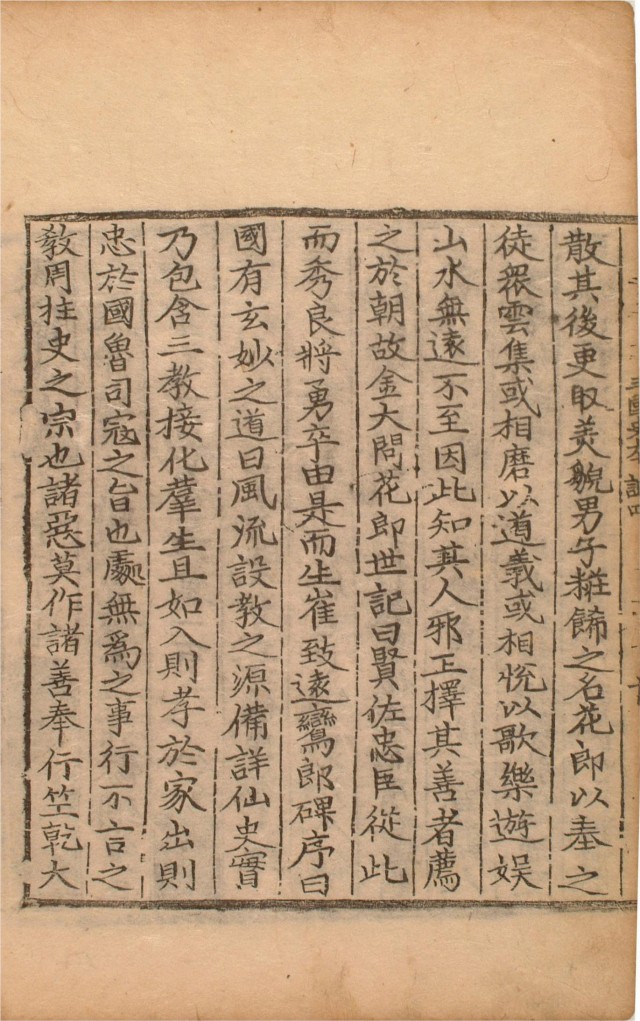 散其後更取美貌男子粧飾之名花郎以奉之
徒衆雲集或相磨以道義或相悅以歌樂遊娱
山水無遠不至因此知其人邪正擇其善者薦
之於朝故金大問花郎世記曰賢佐忠臣從此
而秀良將勇卒由是而生崔致遠鸞郎碑序曰
國有玄妙之道曰風流設教之源備詳仙史實
乃包含三教接化羣生且如入則孝於家出則
忠於國魯司寇之旨也處無爲之事行不言之
教周柱史之宗也諸惡莫作諸善奉行竺乾大